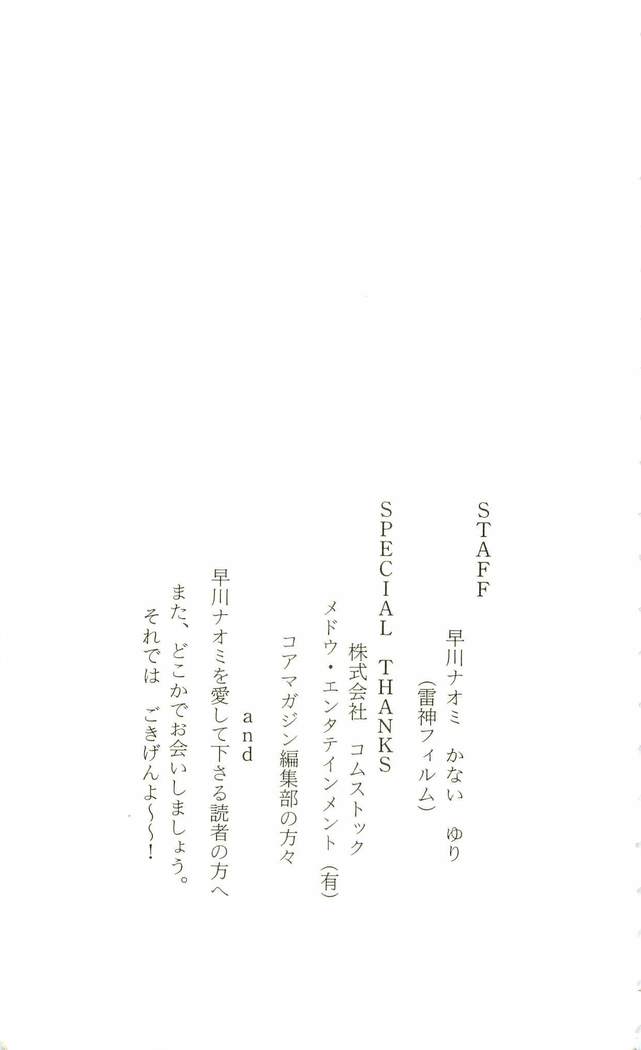 STAFF
早川ナオミ　かない　ゆり
（雷神フィルム）
SPECIAL THANKS
株式会社　コムストック
メドウ・エンタテインメント（有）
コアマガジン編集部の方々
and
早川ナオミを愛して下さる読者の方へ
また、どこかでお会いしましょう。
それでは　ごきげんよ〜〜！